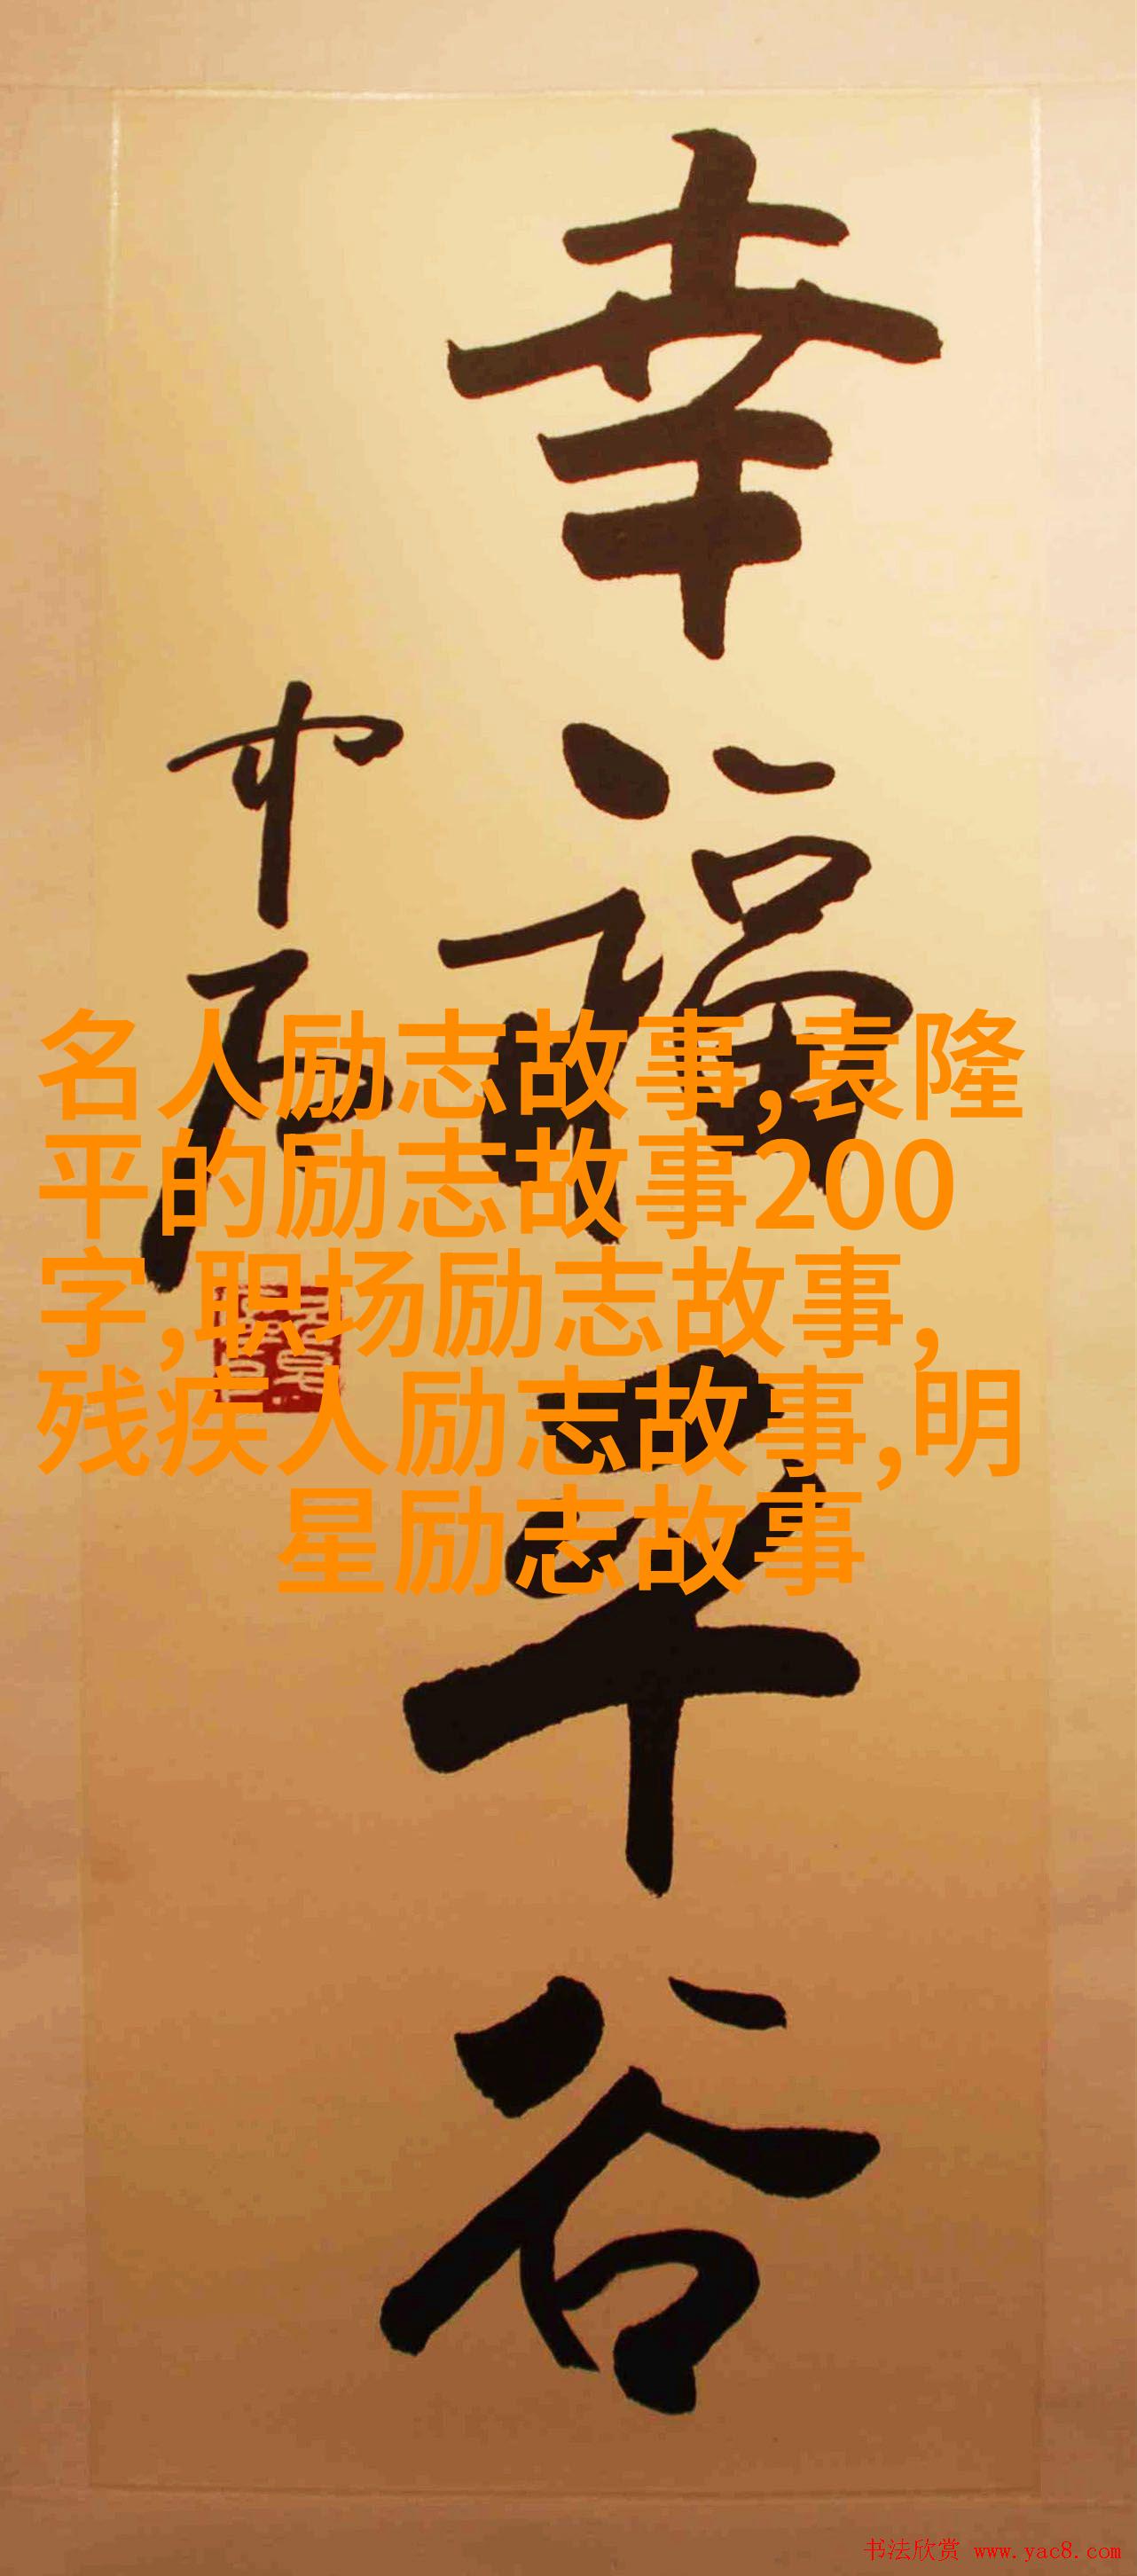 幸福平谷
中石
名人励志故事,袁隆
平的励志故事200
字,职场励志故事,
残疾人励志故事,明
星励志故事
书法欣赏 www.yac8.com